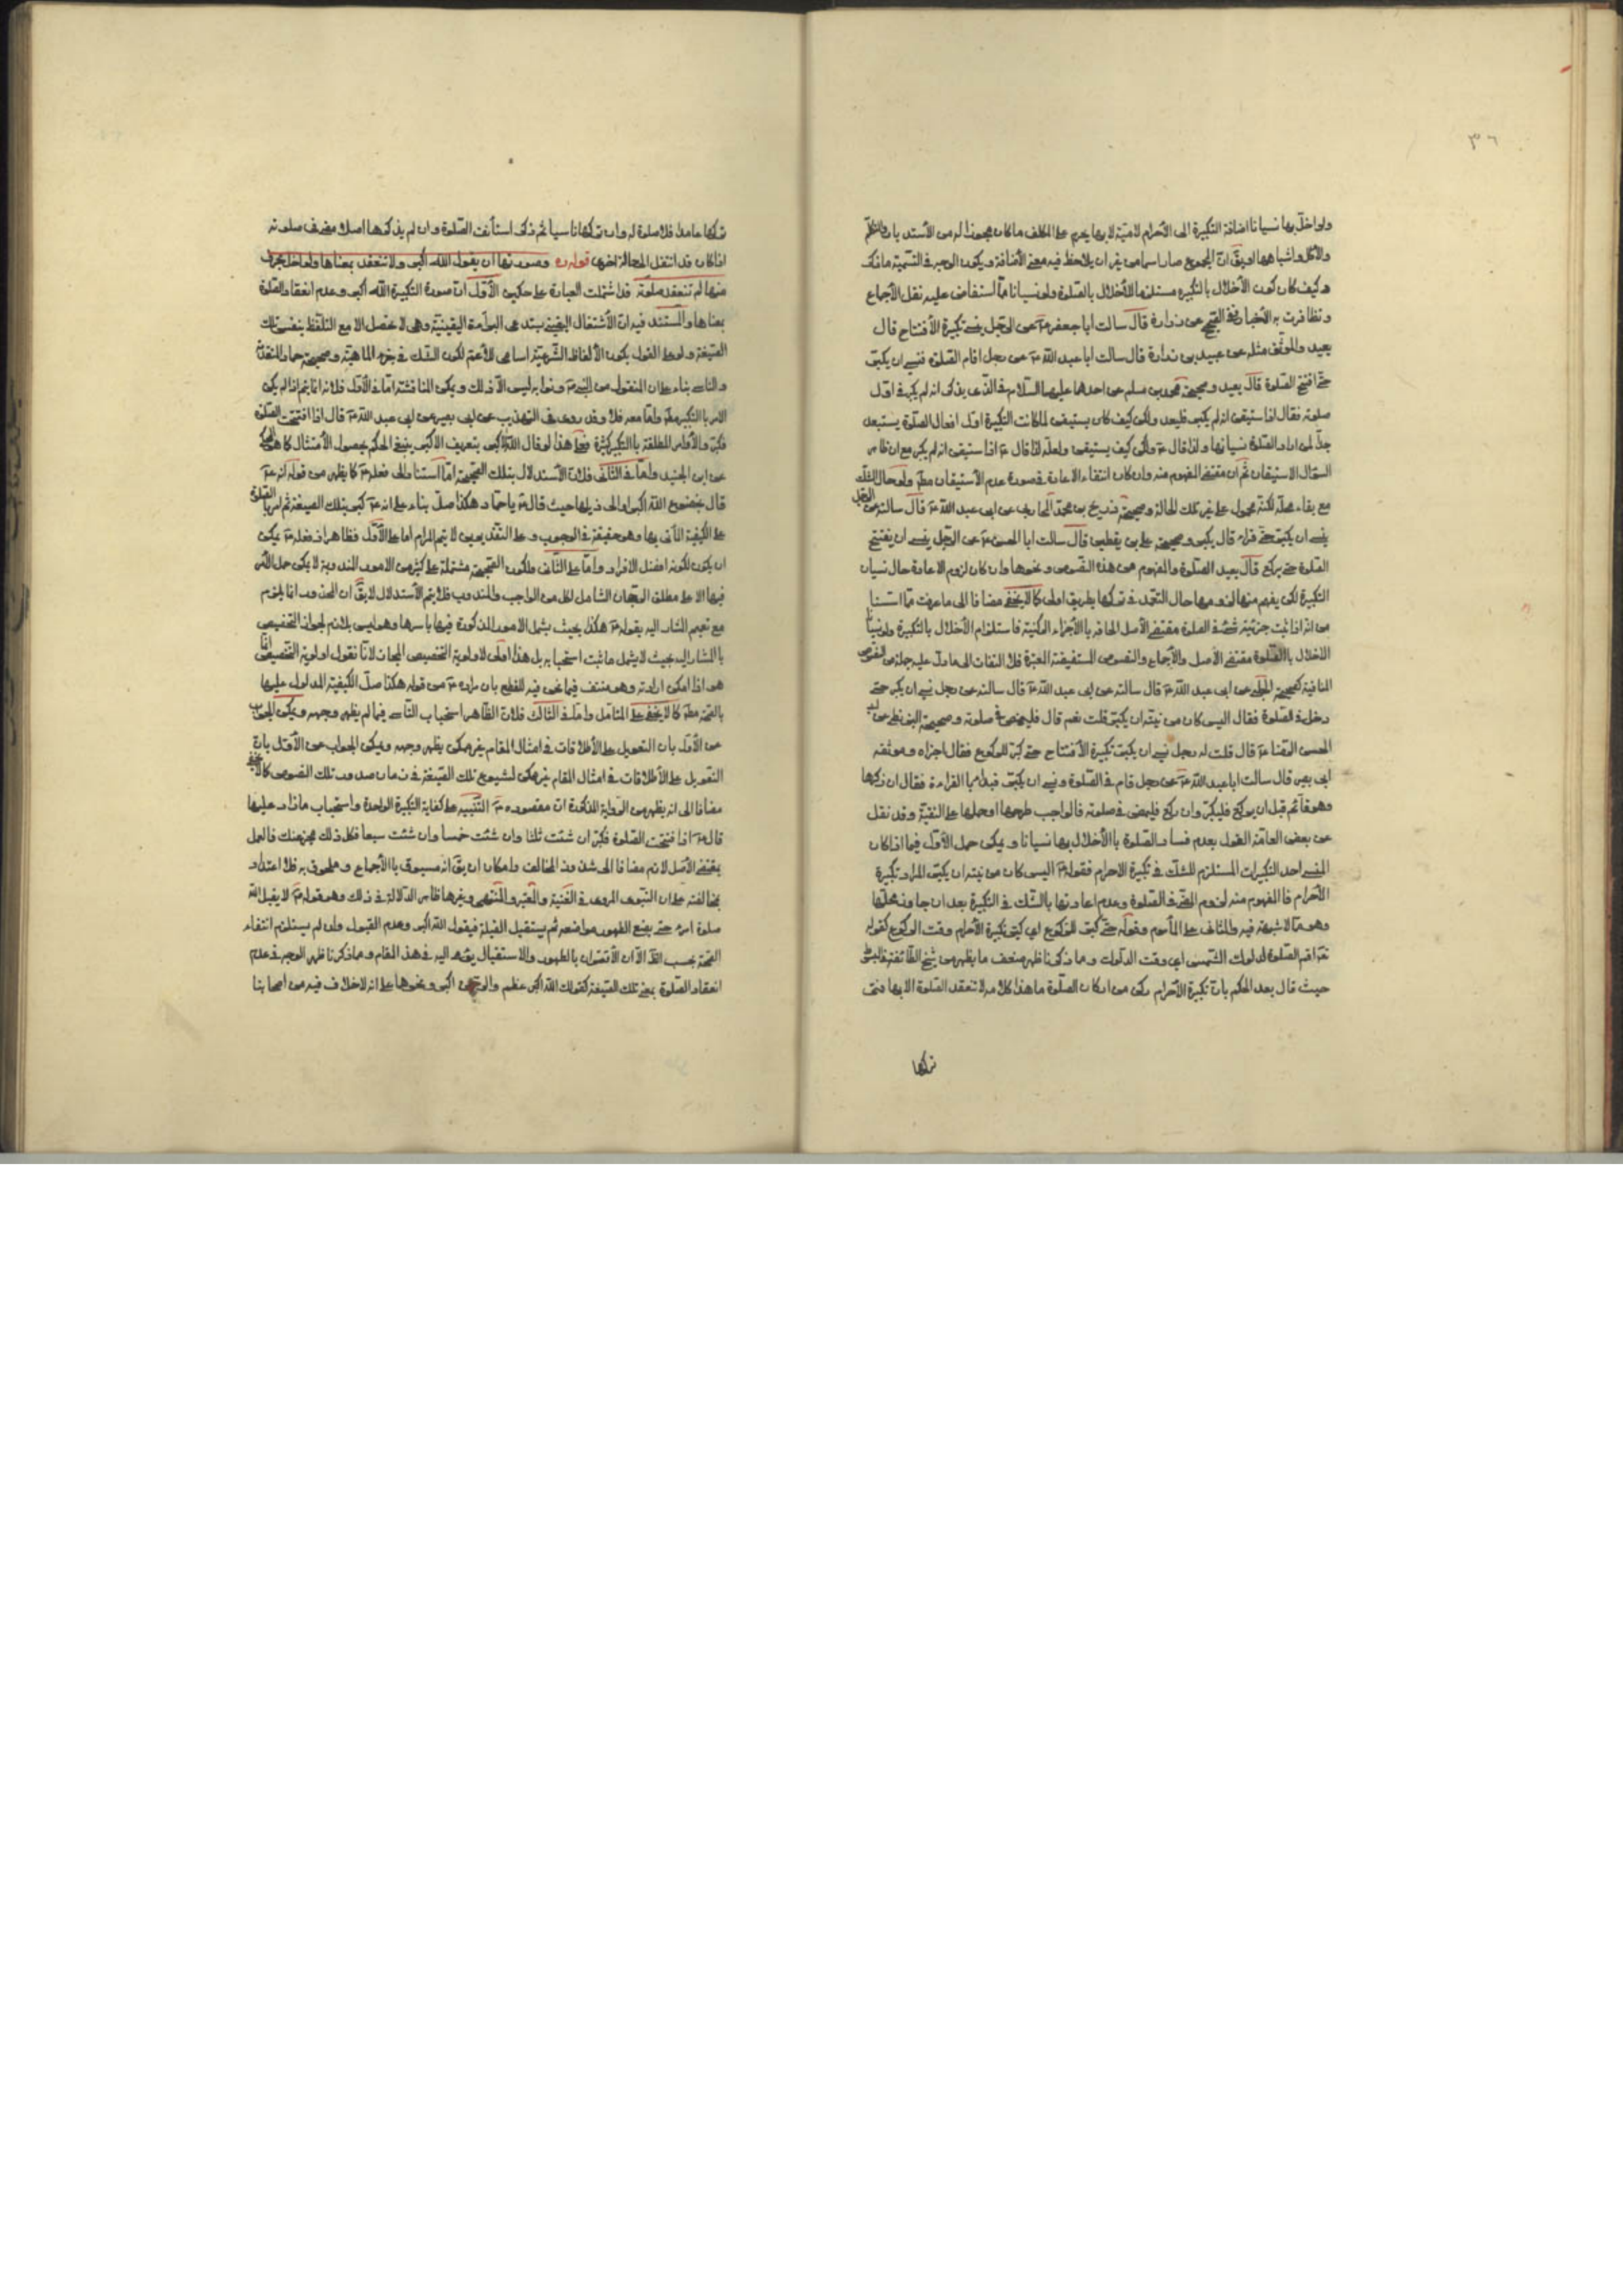 ٣٦
ولو اخلّ بها نسيانا اضافة التكبيرة الى الأحرام لاميّة لانها يحرم على المكلف ما كان مجوزا له من الأستدبار والتكلم
والأكل واشباهها او يقّ انّ المجموع صار اسما من غير ان يلاحظ فيه معنى الأضافة ويكون الوجه في التسمية ما ذكر
وكيف كان كون الأخلال بالتكبيره مستلزما للأخلال بالصّلوة ولو نسيانا ممّا استفاض عليه نقل الأجماع
وتظافرت به الأخبار ففى الصّحيح عن زرارة قال سالت ابا جعفر عن الرّجل ينسى تكبيرة الأفتتاح قال
يعيد والموثّق مثله عن عبيد بن زرارة قال سالت ابا عبد اللّه عن رجل اقام الصّلوة فنسى ان يكبّر
حتّى افتتح الصّلوة قال يعيد وصحيحة محمّد بن مسلم عن احدهما عليهما السّلام في الّذى يذكر انه لم يكبر في اول
صلوته فقال اذا ستيقن انه لم يكبر فليعد ولكن كيف كان يستيقن لما كانت التكبيرة اول افعال الصّلوة يستبعد
جدّا لمن اراد الصّلوة نسيانها ولذا قال ولكن كيف يستيقن ولعله لذا قال اذا ستيقن انه لم يكبر مع ان ظاهر
السّؤال الاستيقان ثم ان مقتضى المفهوم منه وان كان انتفاء الاعادة في صورة عدم الأستيقان مطلقا ولو حال الشّك
مع بقاء محلّه لكنّه محمول على غير تلك الحالة وصحيحة ذريح بن محمّد المحاربى عن ابى عبد اللّه قال سالته عن الرّجل
ينسى ان يكبّر حتّى قراء قال يكبر وصحيحة على بن يقطين قال سالت ابا الحسن عن الرّجل ينسى ان يفتتح
الصّلوة حتى يركع قال يعيد الصّلوة والمفهوم من هذه النّصوص ونحوها وان كان لزوم الاعادة حال نسيان
التكبيرة لكن يفهم منها لزومها حال التعمّد في تركها بطريق اولى كما لا يخفى مضافا الى ما عرفت ممّا اسلفنا
من انه اذا ثبت جزئيّة شىء في الصّلوة مقتضى الأصل الحاقه باالأجزاء الركنية فاستلزام الأخلال بالتكبيرة ولو نسيانا
الأخلال باالصّلوة مقتضى الأصل والأجماع والنصوص المستفيضة المعتبرة فلا التفات الى ما دلّ عليه جملة من النصوص
المنافية كصحيحة الحلبى عن ابى عبد اللّه قال سالته عن رجل نسى ان يكبر حتى
دخل في الصّلوة فقال اليس كان من نيّته ان يكبّر قلت نعم قال فليمض في صلوته وصحيحة البزنطى عن ابى
الحسن الرّضا قال قلت له رجل نسى ان يكبّر تكبيرة الأفتتاح حتى كبّر للركوع فقال اجزاه وموثقة
ابى بصير قال سالت ابا عبد اللّه عن رجل قام في الصّلوة ونسى ان يكبّر فبداء بالقراءة فقال ان ذكرها
وهو قائم قبل ان يركع فليكبّر وان ركع فليمض في صلوته فالواجب طرحها او حملها على التقيّة وقد نقل
عن بعض العامّة القول بعدم فساد الصّلوة باالأخلال بها نسيانا ويمكن حمل الأوّل فيما اذا كان
المنسى احد التكبيرات المستلزم للشّك في تكبيرة الاحرام فقوله اليس كان من نيّته ان يكبّر المراد تكبيرة
الأحرام فالمفهوم منه لزوم المضّى في الصّلوة وعدم اعادتها بالشّك في التكبيرة بعد ان جاوز محلّها
وهو ممّا لا شبهة فيه والثانى على المأموم وقوله حتّى كبّر للركوع اى كبّر تكبيرة الأحرام وقت الركوع كقوله
اقم الصّلوة لدلوك الشّمس اى وقت الدّلوك وممّا ذكرنا ظهر ضعف ما يظهر من شيخ الطّائفة في المبسوط
حيث قال بعد الحكم بانّ تكبيرة الأحرام ركن من اركان الصّلوة ما هذا كلامه لا تنعقد الصّلوة الا بها فمتى
تركها
تركها عامدا فلا صلوة له وان تركها ناسيا ثم ذكر استأنف الصّلوة وان لم يذكرها اصلا مضت صلوته
اذا كان قد انتقل الى حالة اخرى قوله ره وصورتها ان يقول اللّه اكبر ولا تنعقد بمعناها ولو اخلّ بحرف
منها لم تنعقد صلوته قد اشتملت العبارة على حكمين الأوّل انّ صورة التكبيرة اللّه اكبر وعدم انعقاد الصّلوة
بمعناها والمستند فيه انّ الأشتغال اليقينى يستدعى البرائة اليقينيّة وهى لا تحصل الا مع التلفّظ بنفس تلك
الصّيغة ولو على القول بكون الألفاظ الشّرعيّة اسامى للأعمّ لكون الشّك في جزء الماهيّة وصحيحة حماد المتقدّمة
والتاسى بناء على ان المنقول من النبى ونوابه ليس الّا ذلك ويمكن المناقشة امّا في الأوّل فلانه انما يتم اذا لم يكن
الامر باالتكبير مطلقا وامّا معه فلا وقد روى في التهذيب عن ابى بصير عن ابى عبد اللّه قال اذا افتتحت الصّلوة
فكبّر والأوامر المطلقة باالتكبير كثيرة فعلى هذا لو قال اللّه الأكبر بتعريف الاكبر ينبغى الحكم بحصول الأمتثال كما هو المحكى
عن ابن الجنيد وامّا في الثّانى فلانّ الأستدلال بتلك الصّحيحة امّا استنادا الى فعله كما يظهر من قوله انه
قال بخضوع اللّه اكبر او الى ذيلها حيث قال يا حمّاد هكذا صلّ بناء على انه كبر بتلك الصيغة ثم امر بالصّلوة
على الكيفية المأتى بها وهو حقيقة في الوجوب وعلى التقديرين لا يتم المرام اما على الأوّل فظاهر اذ فعله يمكن
ان يكون لكونه افضل الافراد وامّا على الثّانى فلكون الصّحيحة مشتملة على كثير من الامور المندوبة لا يمكن حمل الأمر
فيها الا على مطلق الرّجحان الشامل لكل من الواجب والمندوب فلا يتم الأستدلال لا يقّ ان المحذور انما يلزم
مع تعميم المشار اليه بقوله هكذا بحيث يشمل الامور المذكورة فيها باسرها وهو ليس بلازم لجواز التخصيص
باالمشار اليه بحيث لا يشمل ما ثبت استحبابه بل هذا اولى لاولوية التخصيص المجاز لانّا نقول اولوية التّخصيص انّما
هو اذا امكن ارادته وهو منتف فيما نحن فيه للقطع بان مراده من قوله هكذا صلّ الكيفيّة المدلول عليها
بالصّحة مطلقا كما لا يخفى على المتأمل وامّا في الثّالث فلانّ الظّاهر استحباب التّاسى فيما لم يظهر وجهه ويمكن الجواب
عن الأوّل بان التعويل على الأطلاقات في امثال المقام غير ممكن يظهر وجهه ويمكن الجواب عن الأوّل بان
التّعويل على الأطلاقات في امثال المقام غير ممكن لشيوع تلك الصّيغة في زمان صدور تلك النصوص كما لا يخفى
مضافا الى انه يظهر من الرّواية المذكورة انّ مقصوده التّنبيه على كفاية التكبيرة الواحدة واستحباب ما زاد عليها
قال اذا افتتحت الصّلوة فكبّر ان شئت واحدة وان شئت ثلثا وان شئت خمسا وان شئت سبعا فكل ذلك مجز عنك فالعمل
بمقتضى الأصل لازم مضافا الى شذوذ المخالف وامكان ان يقّ انه مسبوق باالأجماع وملحوق به فلا اعتداد
بمخالفته على ان النّبوى المروى في الغنية والمعتبر والمنتهى وغيرها ظاهر الدّلالة في ذلك وهو قوله لا يقبل اللّه
صلوة امرء حتى يضع الطّهور مواضعه ثم يستقبل القبلة فيقول اللّه اكبر وعدم القبول وان لم يستلزم انتفاء
الصّحة بحسب الظّاهر الّا ان الأقتران بالطهور والاستقبال يؤمى اليه في هذا المقام وممّا ذكرنا ظهر الوجه في عدم
انعقاد الصّلوة بمعنى تلك الصّيغة كقولك اللّه اكبر عظيم والرّحمن اكبر ونحوها على انه لا خلاف فيه من اصحابنا